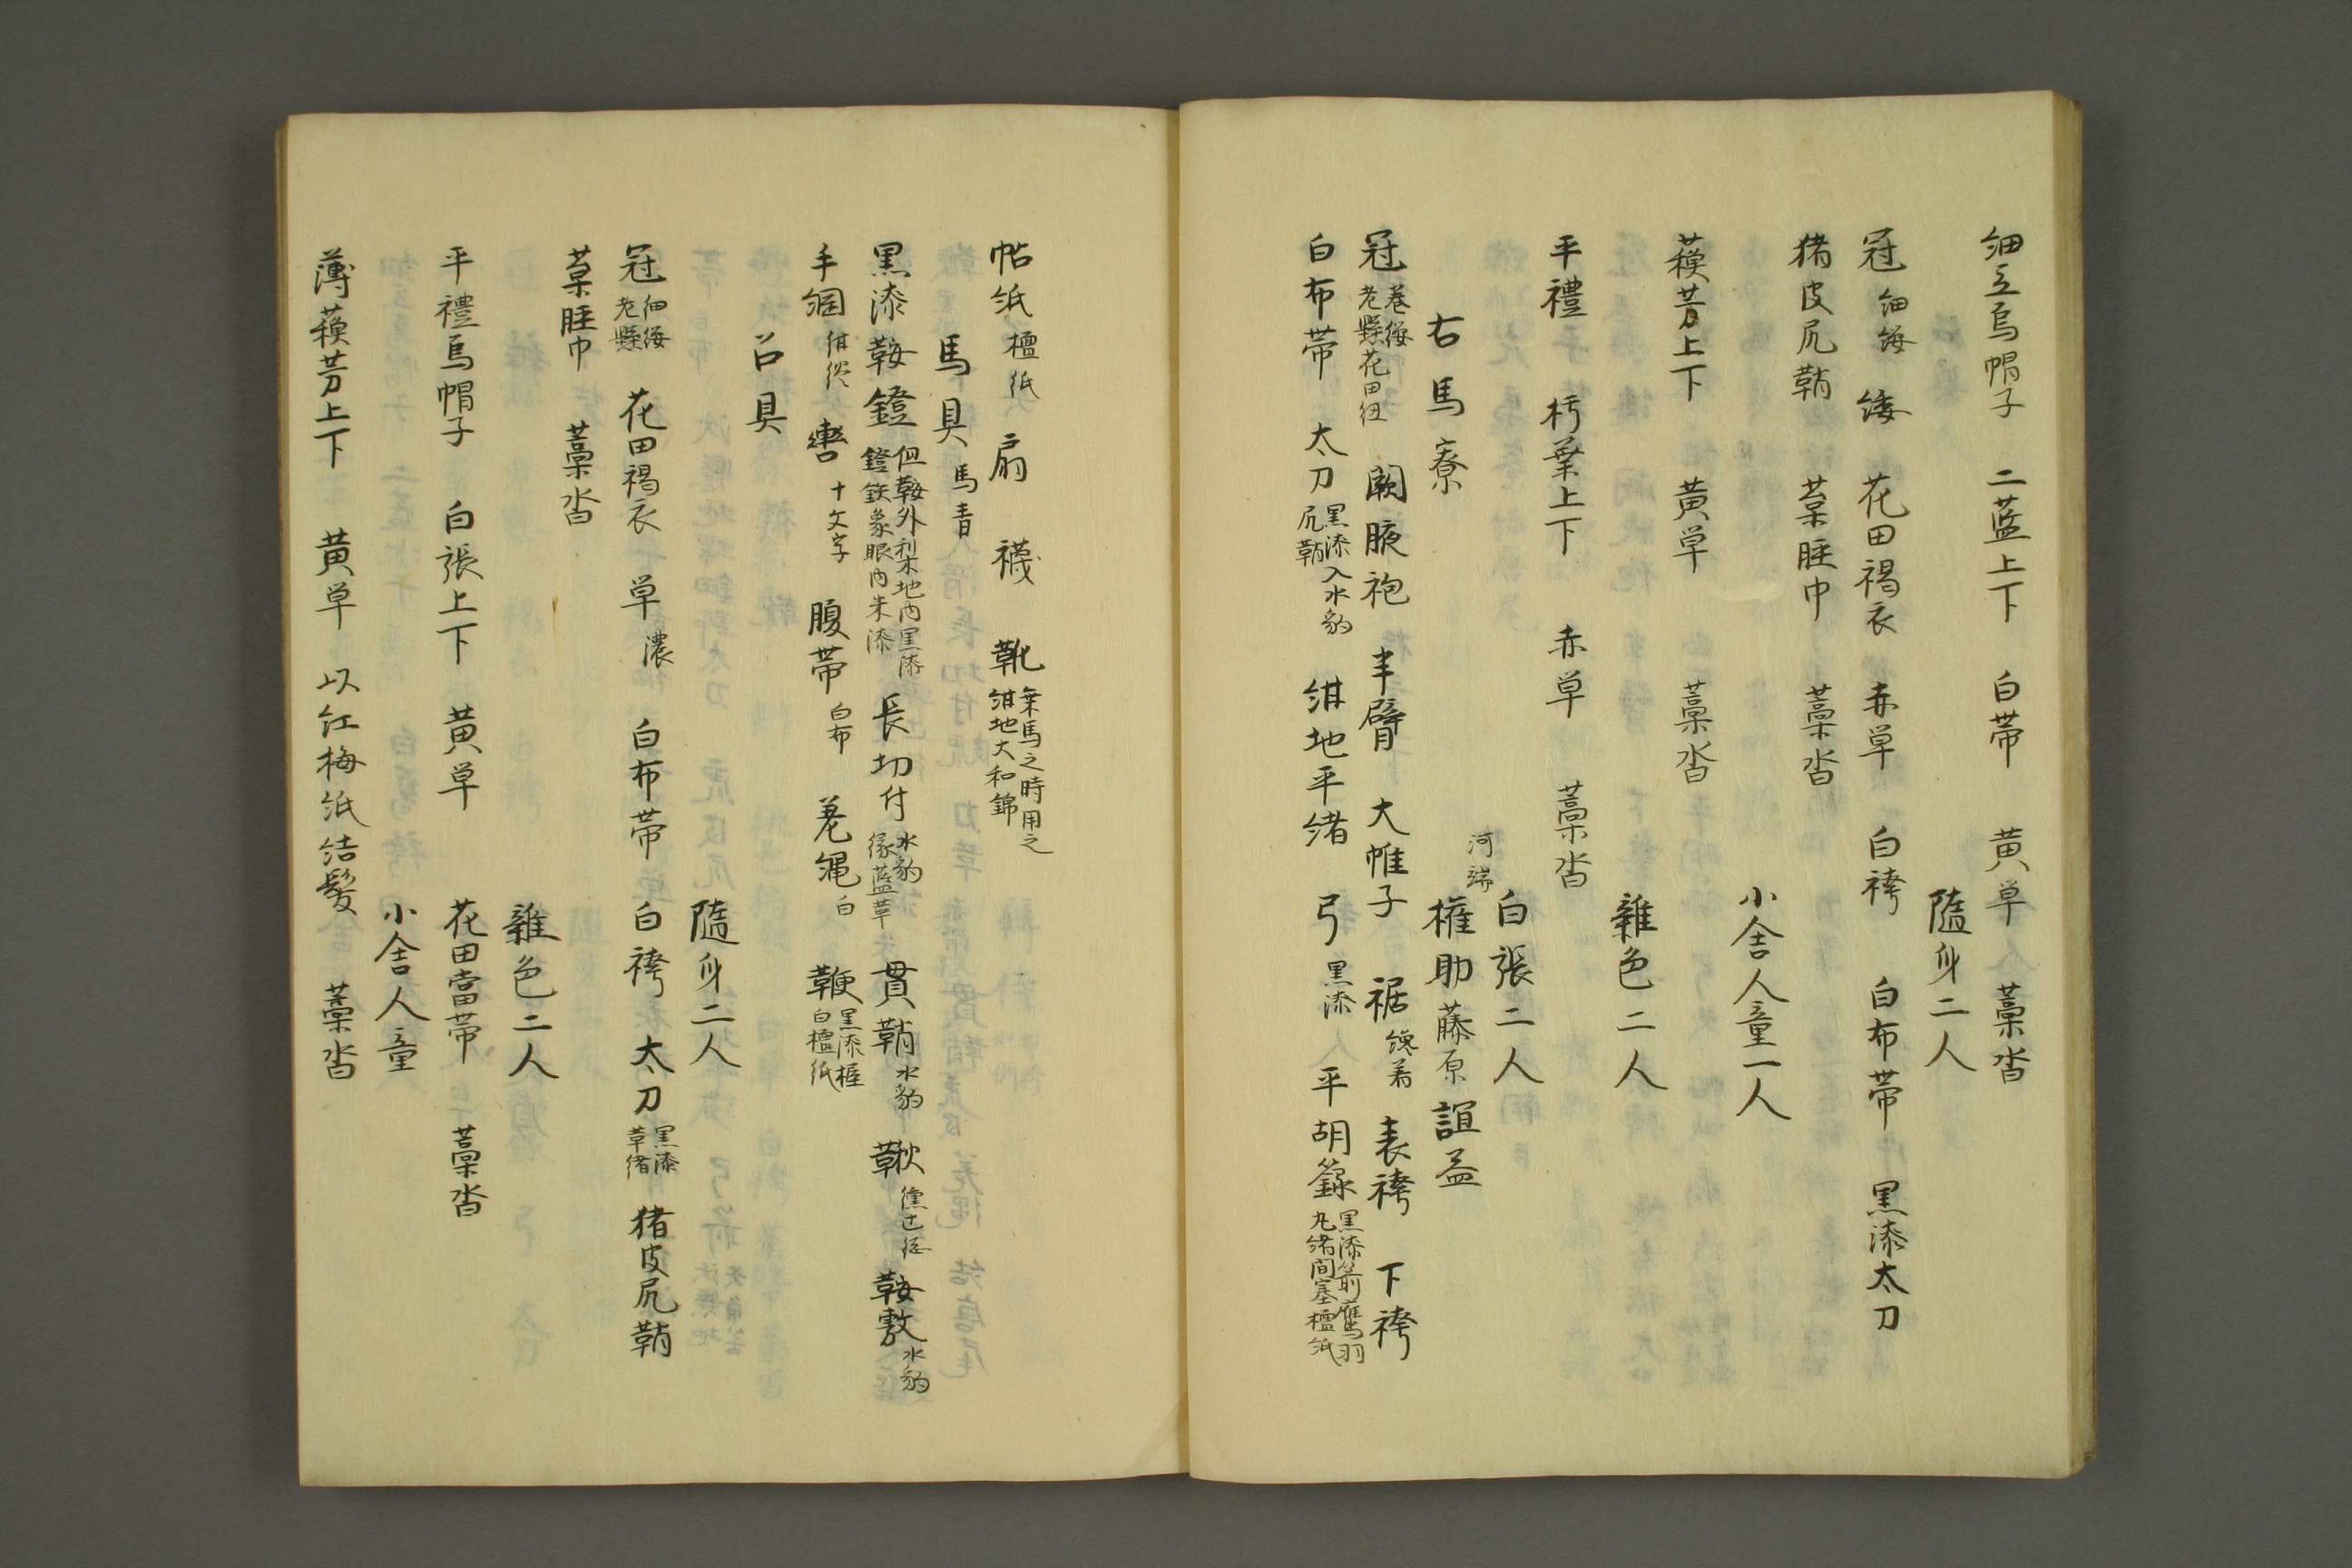 細立烏帽子 二藍上下 白帯 黄単 藁沓
隨身二人
冠 細緌 緌 花田褐衣 赤単 白袴 白布帯 黒漆太刀
猪皮尻鞘 葉脛巾 藁沓
小舎人童一人
蘓芳上下 黄単 藁沓
雜色二人
平禮 朽葉上下 赤単 藁沓
白張二人
右馬寮
河端
権助藤原誼益
冠 巻緌 老懸花田紐 闕腋袍 半臂 大帷子 裾 纔着 表袴 下袴
白布帯 太刀 黒漆入水豹 尻鞘 紺地平緒 弓 黒漆 平胡籙 黒漆箭鴈羽 丸緒間塞檀紙
帖紙 檀紙 扇 襪 靴 乗馬之時用之 紺地大和錦
馬具 馬青
黒漆鞍鐙 但鞍外梨地内黒漆 鐙鉄象眼内朱漆 長切付 水豹 縁藍革 貫鞘 水豹 鞦 鞍敷 水豹
手綱 紺 轡 十文字 腹帯 白布 差縄 白 鞭 黒漆握 白檀紙
召具
隨身二人
冠 細緌 老懸 花田褐衣 単 濃 白布帯 白袴 太刀 黒漆 革緒 猪皮尻鞘
葉脛巾 藁沓
雜色二人
平禮烏帽子 白張上下 黄単 花田當帯 藁沓
小舎人童
薄蘓芳上下 黄単 以紅梅紙結髪 藁沓